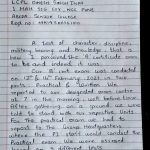 LCPL GANESH SINGH DIXIT
1 MAH SIG COY, NCC, PUNE
ABASA SENIOR COLLEGE
REG NO:
A test of character, discipline,
military training and knowledge that is
how I perceived the 'B' certificate exam
to be and indeed it was.
Our B cert exam was conducted
on 15 & 16 February 2025 in two
parts: Practical & Written. We
reported to our designated exam centre
at 7 in the morning well before time.
After gathering on a ground we were
told to stand with our respective units.
For the practical exam we had to
report to the Group Headquarters,
where the PI staff would conduct the
Practical exam. We were assessed
on different